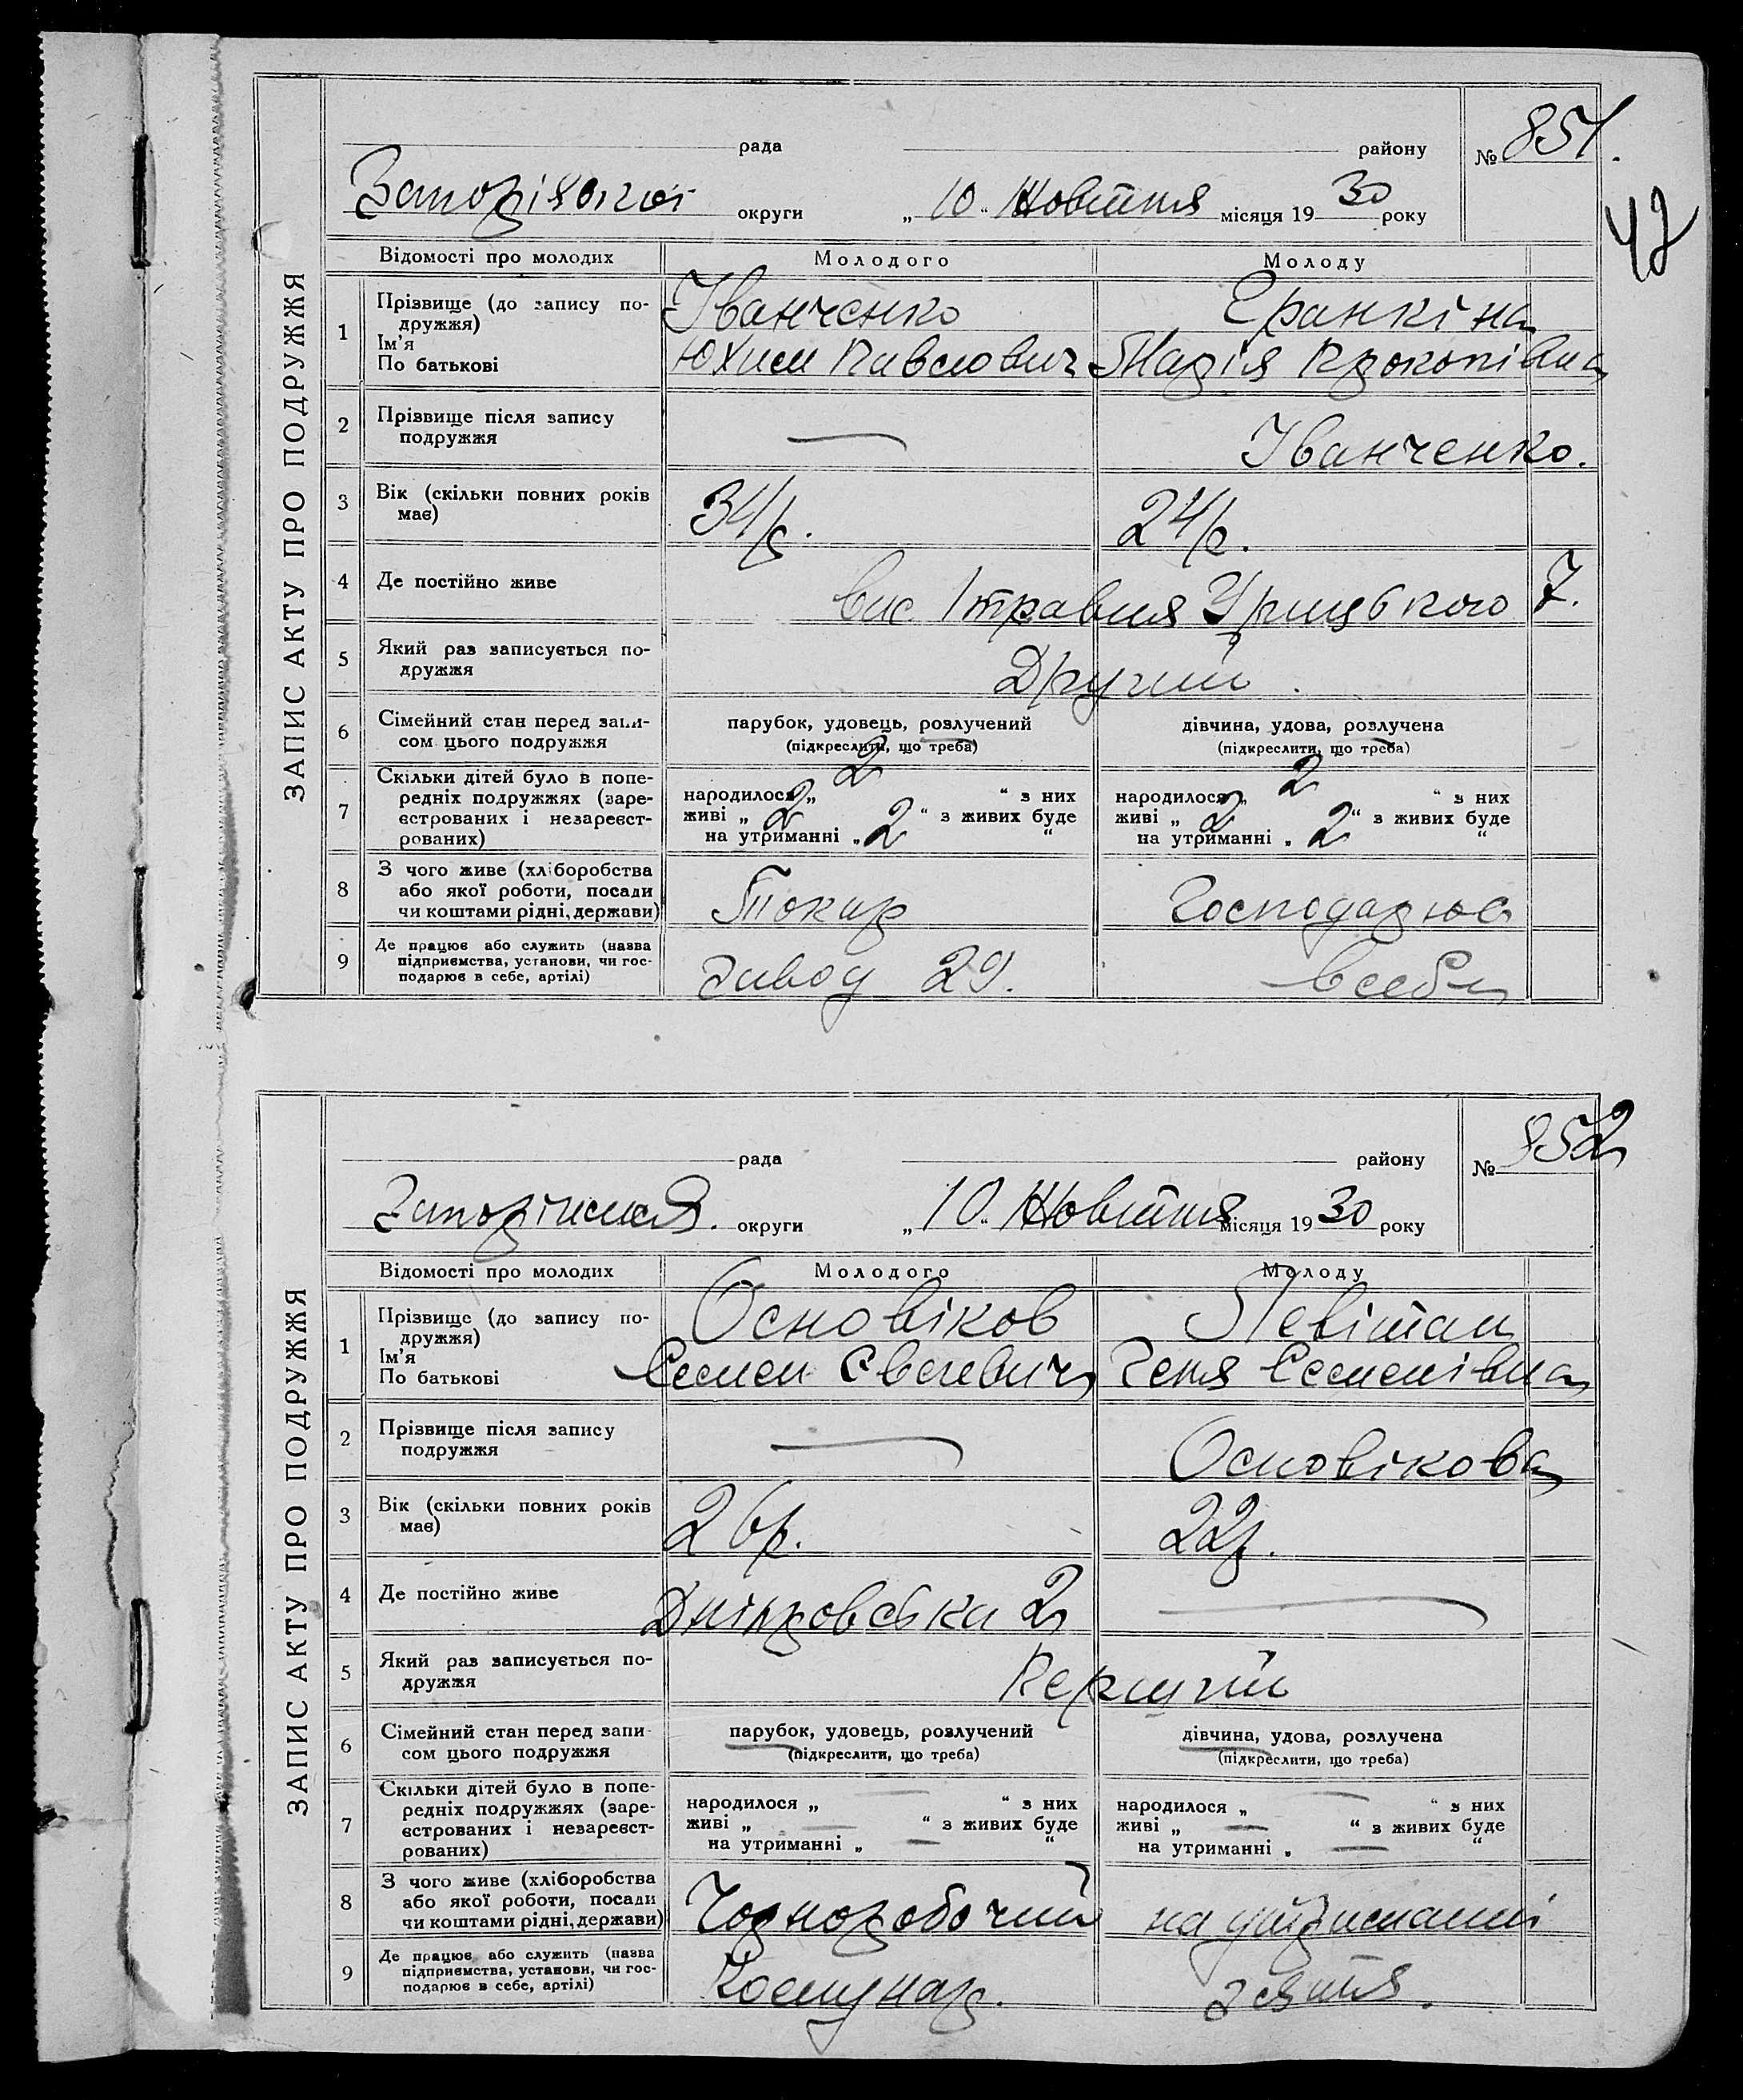 ЗАПИС АКТУ ПРО ПОДРУЖЖЯ
рада району № 851.
42
Запорізької округи „10“ Жовтня місяця 1930 року
Відомості про молодих Молодого Молоду
1 Прізвище (до запису по-
дружжя)
Ім'я
По батькові
Іванченко
Юхим Павлович
Єранкіна
Марія Прокопівна
2 Прізвище після запису
подружжя
— Іванченко.
3 Вік (скільки повних років
має)
34/р. 24/р.
4 Де постійно живе
вис. 1 травня Урицького 7.
5 Який раз записується по-
дружжя
Другий.
6 Сімейний стан перед запи-
сом цього подружжя
парубок, удовець, розлучений
(підкреслити, що треба)
дівчина, удова, розлучена
(підкреслити, що треба)
7 Скільки дітей було в попе-
редніх подружжях (заре-
єстрованих і незареєст-
рованих)
народилося „ 2 “ з них
живі „ 2 “ з живих буде
на утриманні „ 2 “
народилося „ 2 “ з них
живі „ 2 “ з живих буде
на утриманні „ 2 “
8 З чого живе (хліборобства
або якої роботи, посади
чи коштами рідні, держави)
Токар Господарює
9 Де працює або служить (назва
підприємства, установи, чи гос-
подарює в себе, артілі)
завод 29. в себе
ЗАПИС АКТУ ПРО ПОДРУЖЖЯ
рада району № 852
округи „10“ Жовтня місяця 1930 року
Відомості про молодих Молодого Молоду
1 Прізвище (до запису по-
дружжя)
Ім'я
По батькові
Основіков
Семен Євсгевич
Левітан
Геня Семенівна
2 Прізвище після запису
подружжя
— Основікова
3 Вік (скільки повних років
має)
26р. 22р.
4 Де постійно живе
Дніпровська 2 —
5 Який раз записується по-
дружжя
Перший
6 Сімейний стан перед запи-
сом цього подружжя
парубок, удовець, розлучений
(підкреслити, що треба)
дівчина, удова, розлучена
(підкреслити, що треба)
7 Скільки дітей було в попе-
редніх подружжях (заре-
єстрованих і незареєст-
рованих)
народилося „ — “ з них
живі „ — “ з живих буде
на утриманні „ — “
народилося „ — “ з них
живі „ — “ з живих буде
на утриманні „ — “
8 З чого живе (хліборобства
або якої роботи, посади
чи коштами рідні, держави)
Чорноробочий на утриманні
9 Де працює або служить (назва
підприємства, установи, чи гос-
подарює в себе, артілі)
Комунар. зятя.